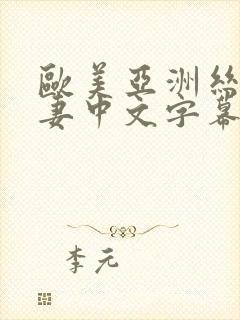 歐美亞洲絲
妻中文字幕
李元